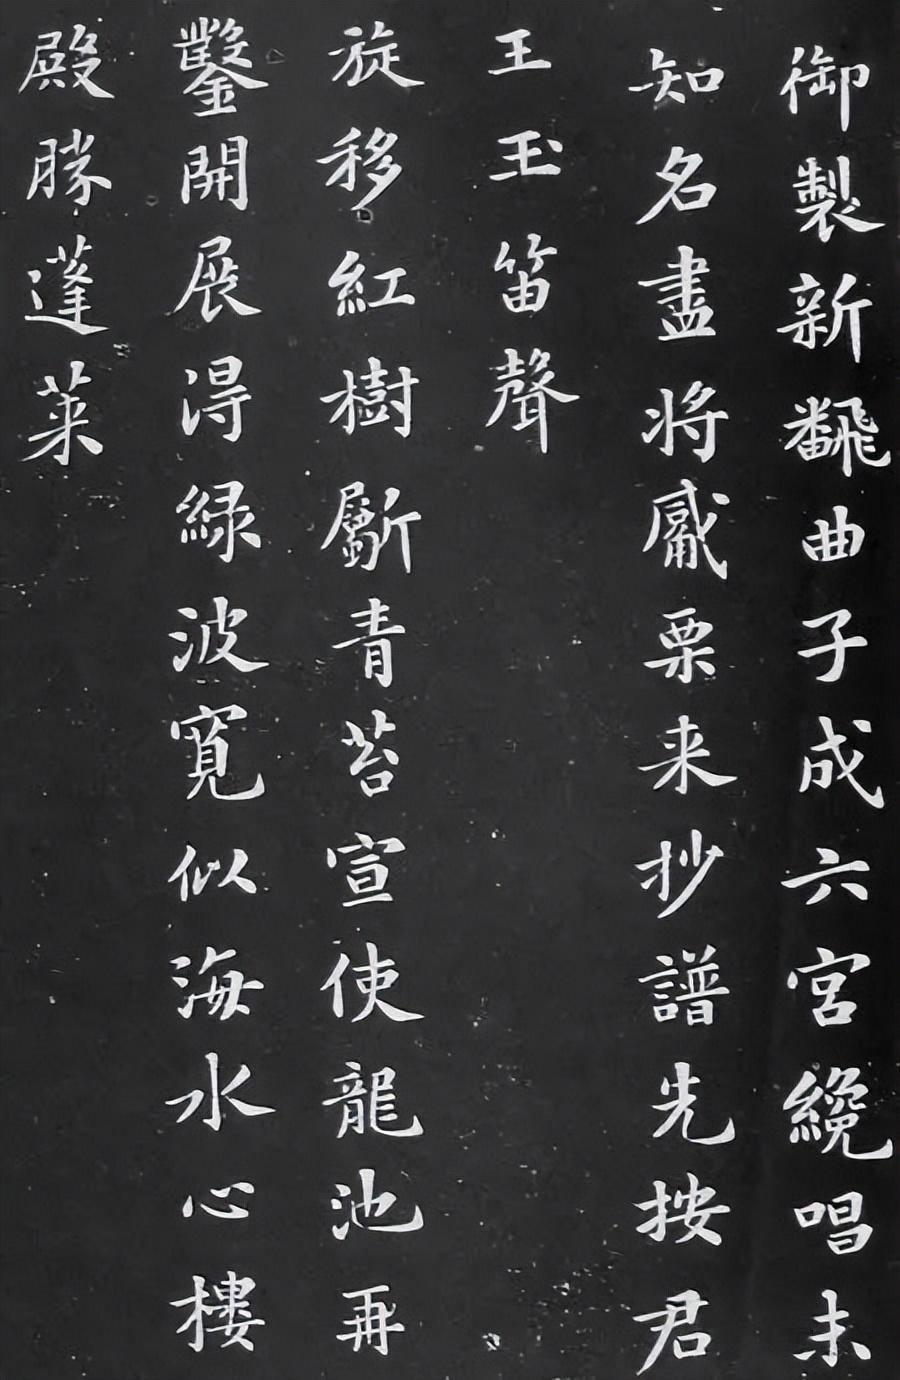 御製新飜曲子成六宮纔唱未
知名盡將觱栗来抄譜先按君
王玉笛聲
旋移紅樹斸青苔宣使龍池再
鑿開展得緑波寛似海水心樓
殿勝蓬莱